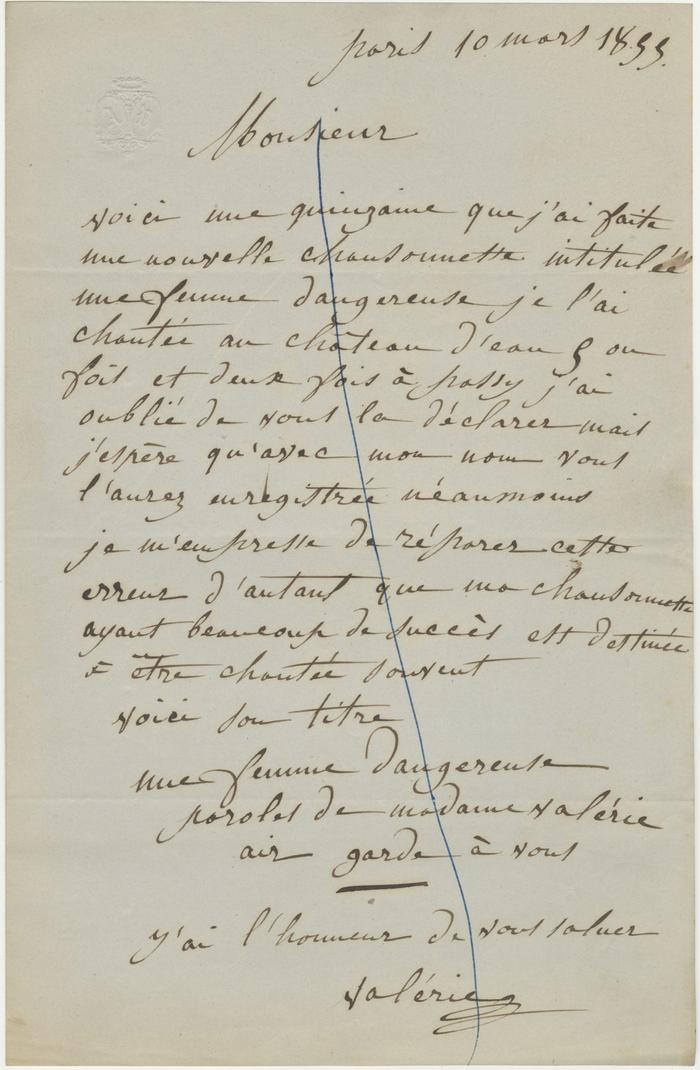 paris 10 mars 1855.
Monsieur
voici une quinzaine que j'ai faite
une nouvelle chansonnette intitulée
une femme dangereuse je l'ai
chantée au château d'eau 5 ou
fois et deux fois à passy j'ai
oublié de vous la déclarer mais
j'espère qu'avec mon nom vous
l'aurez enregistrée néaumoins
je m'empresse de réparer cette
erreur d'autant que ma chansonnette
ayant beaucoup de succès est destinée
à être chantée souvent
voici son titre
une femme dangereuse
paroles de madame valérie
air garde à vous
j'ai l'honneur de vous saluer
valérie